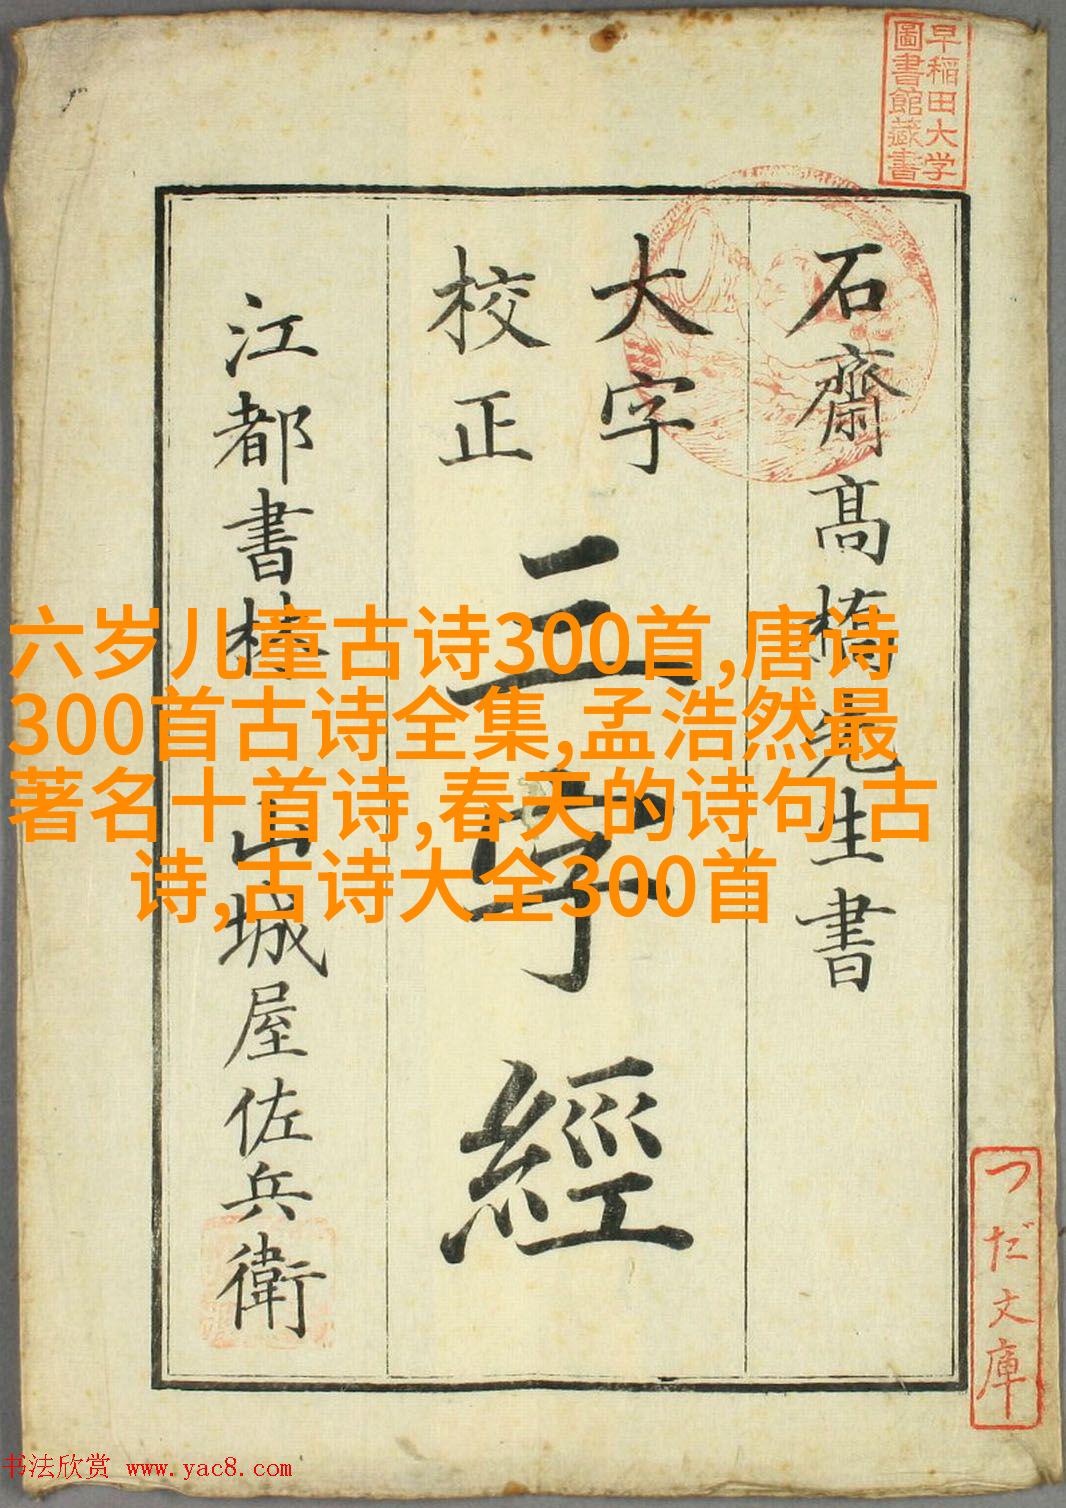 早稲田大学
圖書館藏書
石齋高橋先生書
大字
校正
三字經
江都書林
山城屋佐兵衛
六岁儿童古诗300首,唐诗
300首古诗全集,孟浩然最
著名十首诗,春天的诗句 古
诗,古诗大全300首
つだ文庫
书法欣赏 www.yac8.com